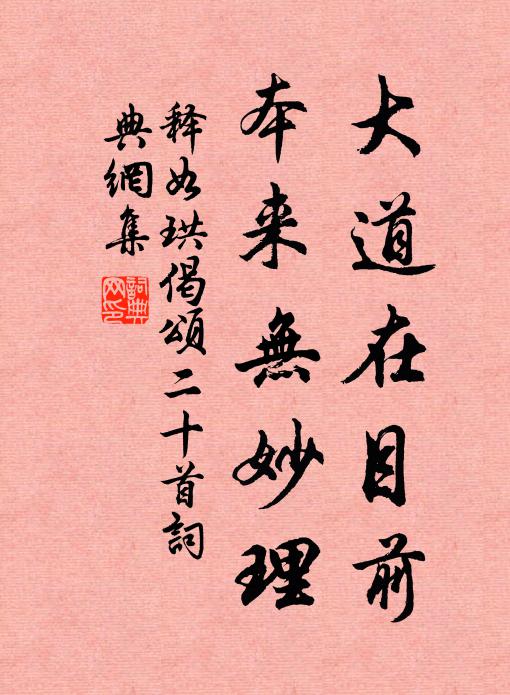 大道在目前
本来無妙理
释如珙偈頌二十首詞
典網集
詞典网印